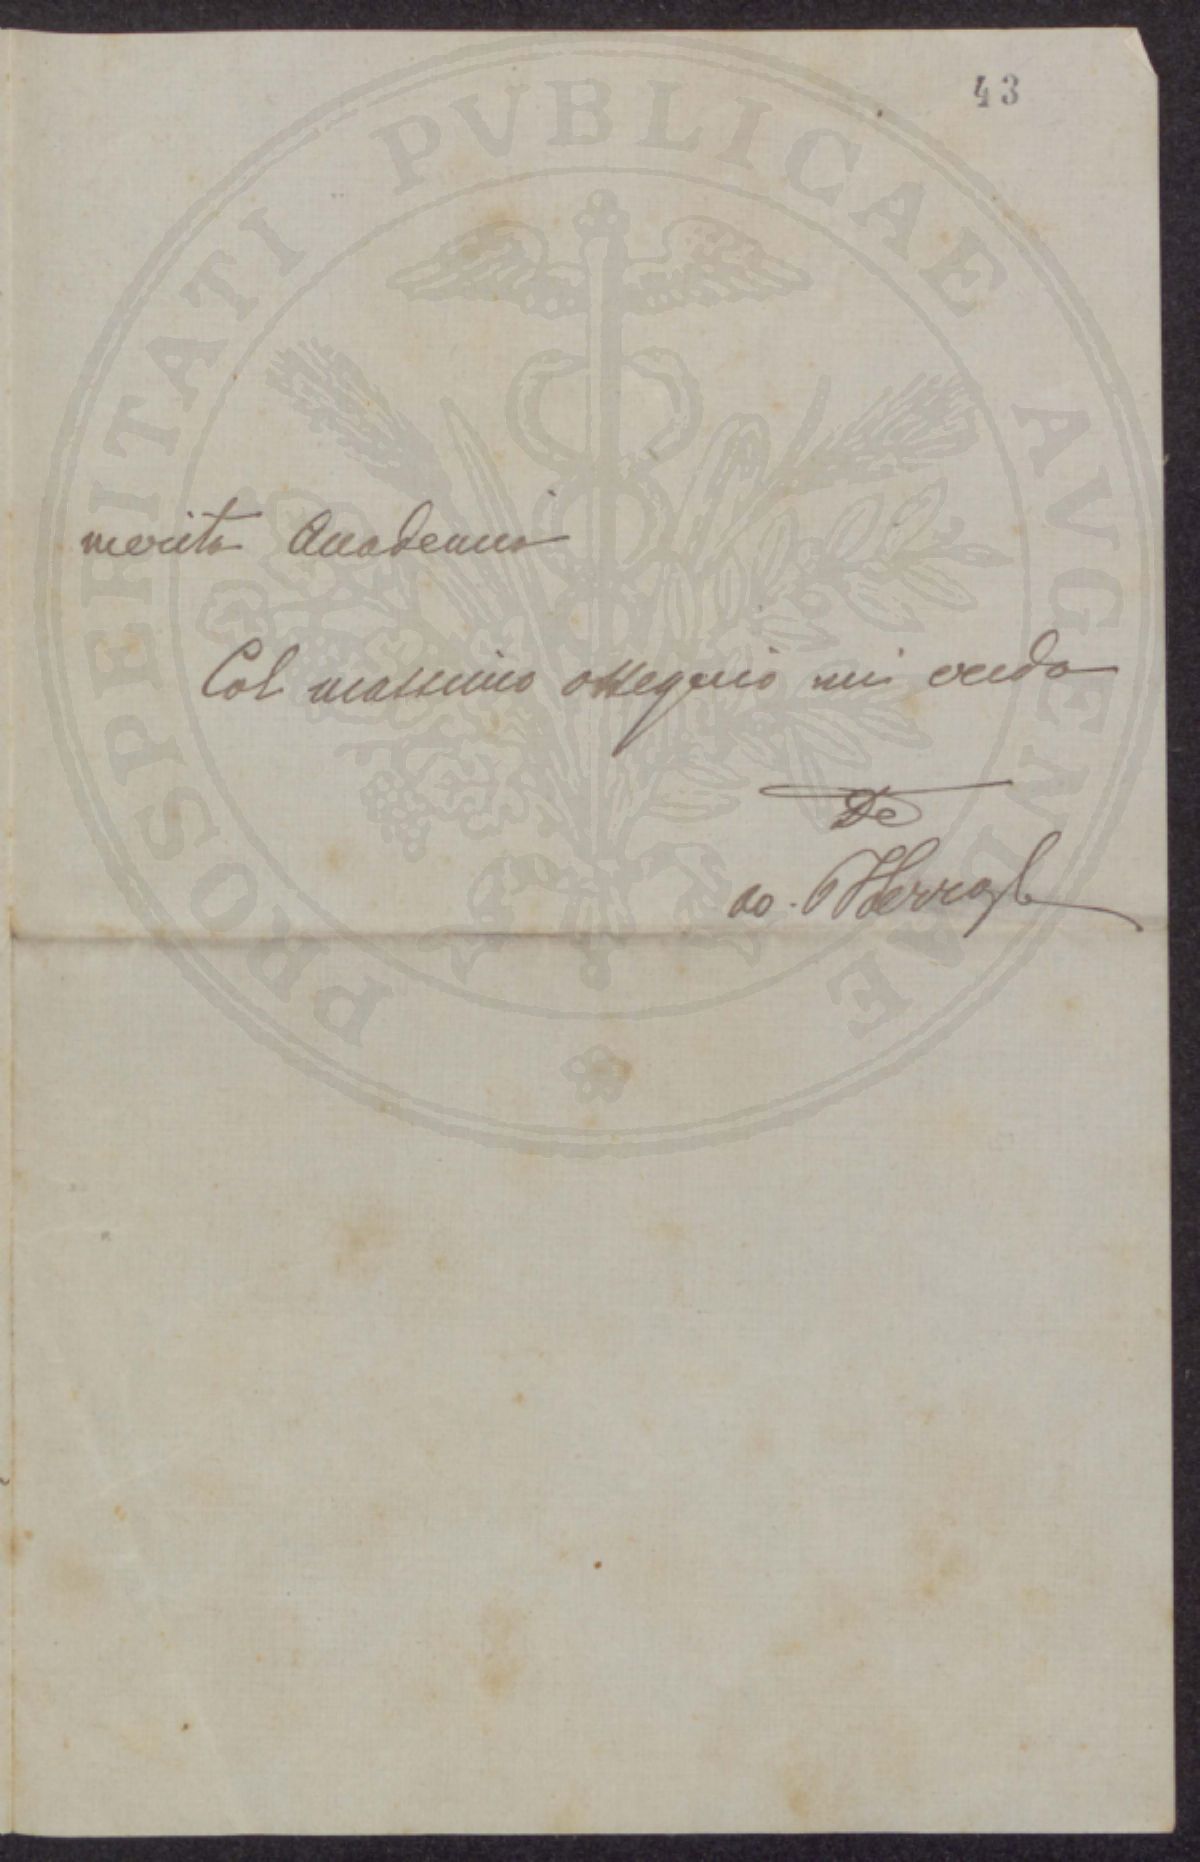 43
PROSPERITATI PVBLICAE AVGENDAE
merita Accademia
Col massimo ossequio mi creda